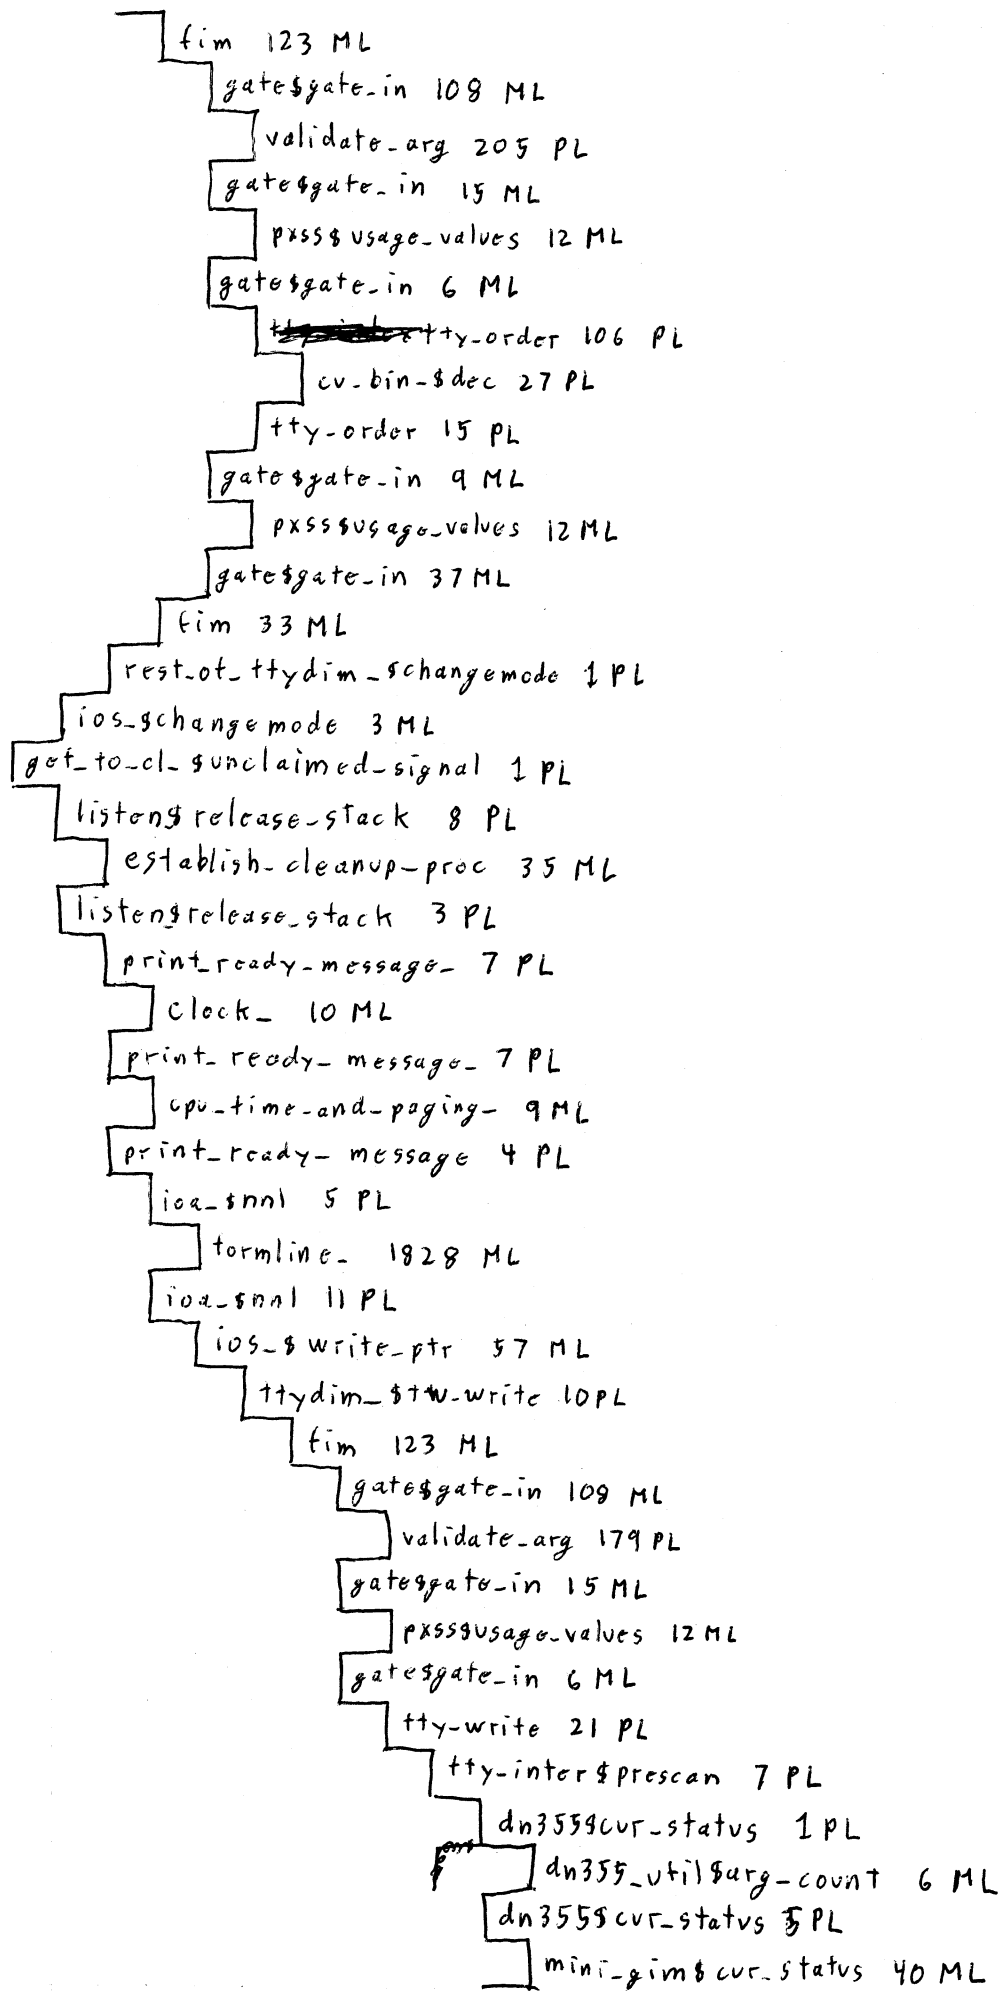 fim 123 ML
gate$gate_in 108 ML
validate_arg 205 PL
gate$gate_in 15 ML
pxss$usage_values 12 ML
gate$gate_in 6 ML
tty_order 106 PL
cv_bin_$dec 27 PL
tty_order 15 PL
gate$gate_in 9 ML
pxss$usage_values 12 ML
gate$gate_in 37 ML
fim 33 ML
rest_of_ttydim_$changemode 1 PL
ios_$changemode 3 ML
get_to_cl_$unclaimed_signal 1 PL
listen$release_stack 8 PL
establish_cleanup_proc 35 ML
listen$release_stack 3 PL
print_ready_message_ 7 PL
clock_ 10 ML
print_ready_message_ 7 PL
cpu_time_and_paging_ 9 ML
print_ready_message 4 PL
ioa_$nnl 5 PL
formline_ 1828 ML
ioa_$nnl 11 PL
ios_$write_ptr 57 ML
ttydim_$tw_write 10 PL
fim 123 ML
gate$gate_in 108 ML
validate_arg 179 PL
gate$gate_in 15 ML
pxss$usage_values 12 ML
gate$gate_in 6 ML
tty_write 21 PL
tty_inter$prescan 7 PL
dn355$cur_status 1 PL
dn355_util$arg_count 6 ML
dn355$cur_status 5 PL
mini_gim$cur_status 40 ML